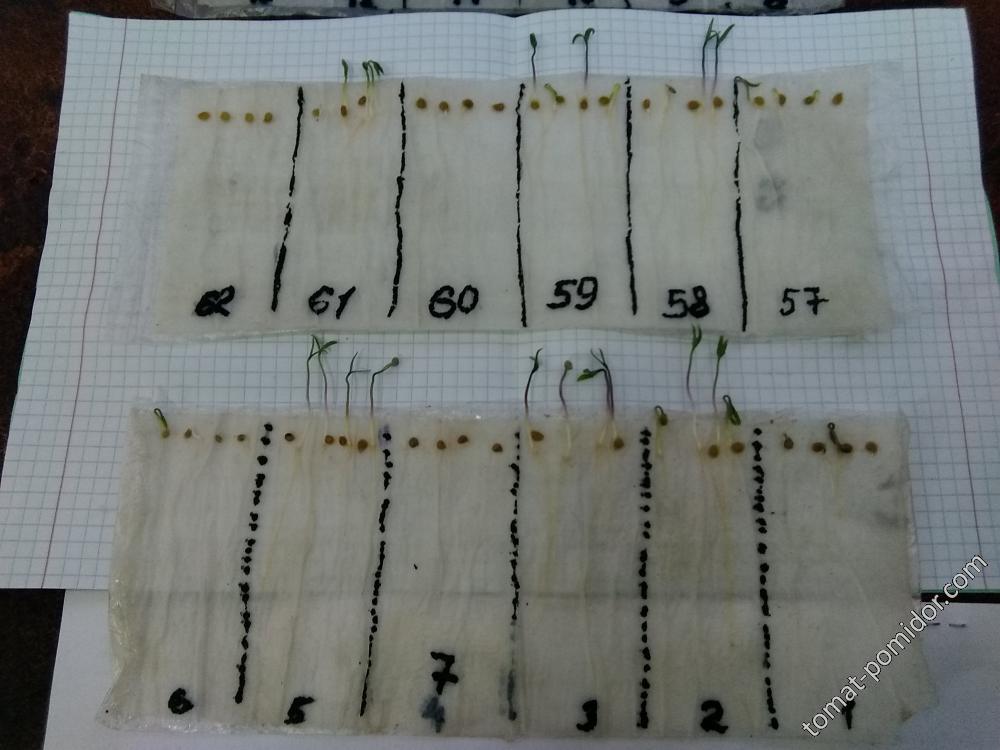 62 61 60 59 58 57
7
6 5 4 3 2 1
tomat-pomidor.com